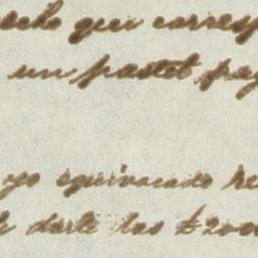 que corresp
un pastel pag
yo equivocado he
darle las £200